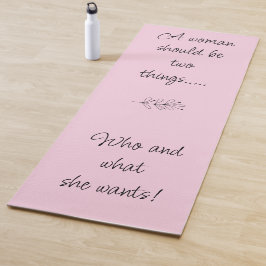 A woman
should be
two
things.....
Who and
what
she wants!